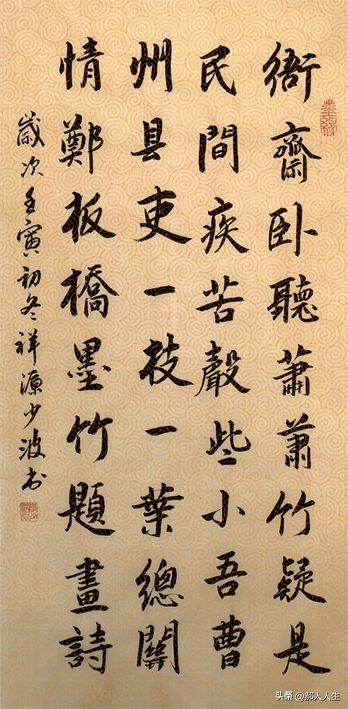 衙齋卧聽蕭蕭竹疑是
民間疾苦聲些小吾曹
州县吏一枝一葉總關
情鄭板橋墨竹題畫詩
歲次壬寅初冬祥源少波书
头条@鄰人人生